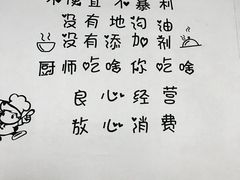 不便宜 不暴利
没有地沟油
没有添加剂
厨师吃啥你吃啥
良心经营
放心消费